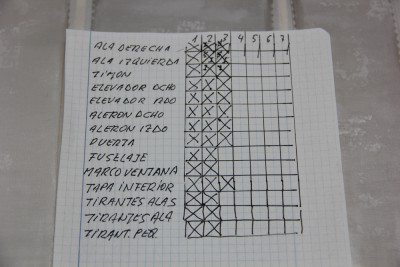 1 2 3 4 5 6 7
ALA DERECHA
ALA IZQUIERDA
TIMON
ELEVADOR DCHO
ELEVADOR IZDO
ALERON DCHO
ALERON IZDO
PUERTA
FUSELAJE
MARCO VENTANA
TAPA INFERIOR
TIRANTES ALAS
TIRANTES ALA
TIRANT. PEQ.